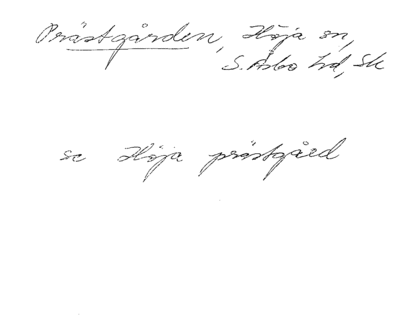 Prästgården, Höja sn,
S. Åsbo hd, Sk
se Höja prästgård